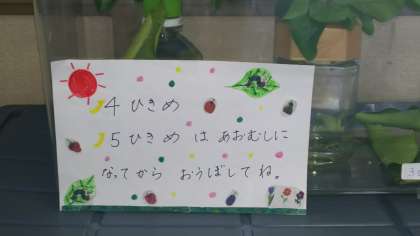 4ひきめ
5ひきめ は あおむしに
なってから おうぼしてね。